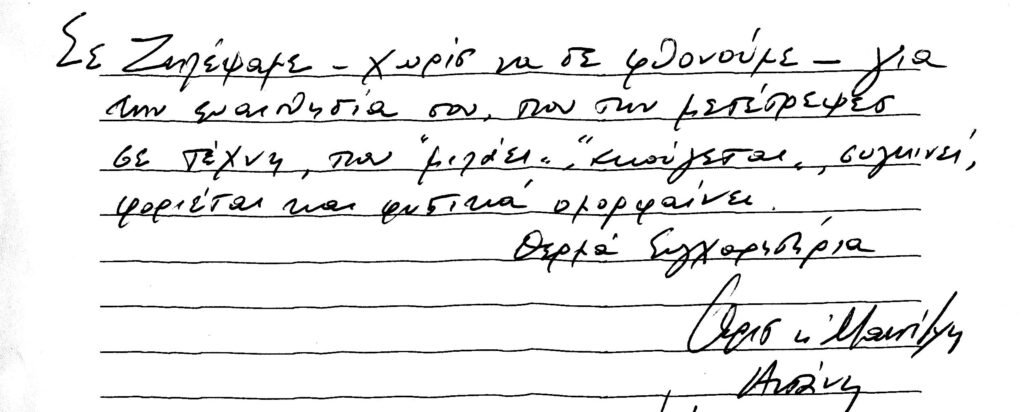 Σε Ζηλέψαμε – χωρίς να σε φθονούμε – για
την ευαισθησία σου, που την μετέτρεψες
σε τέχνη, που "μιλάει", "ακούγεται", συγκινεί,
φοριέται και φυσικά ομορφαίνει.
Θερμά Συγχαρητήρια